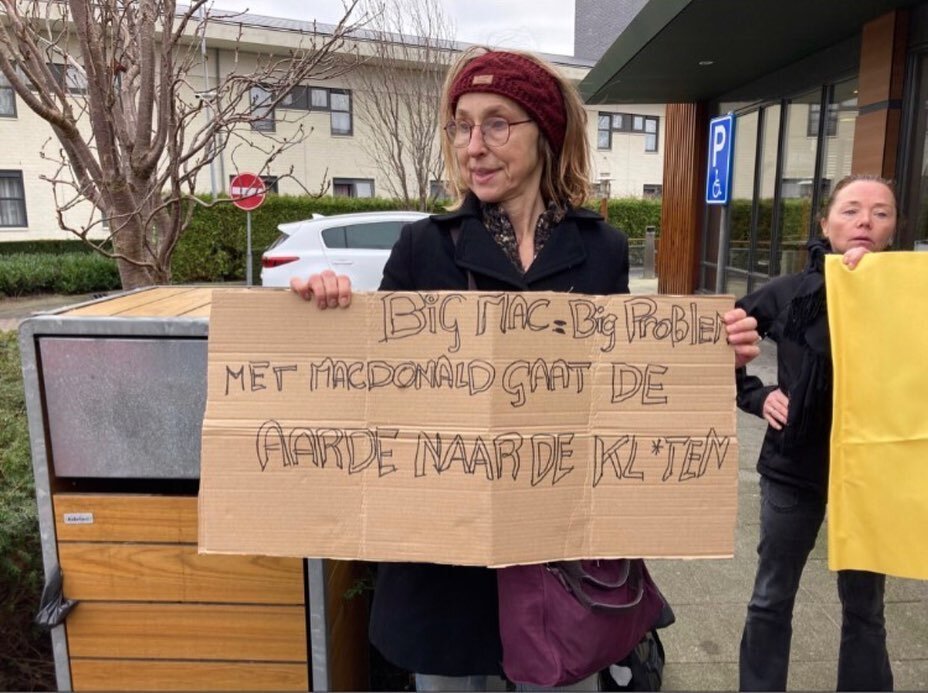 BiG MAC = Big Problem
MET MACDONALD GAAT DE
AARDE NAAR DE KL*TEN
P